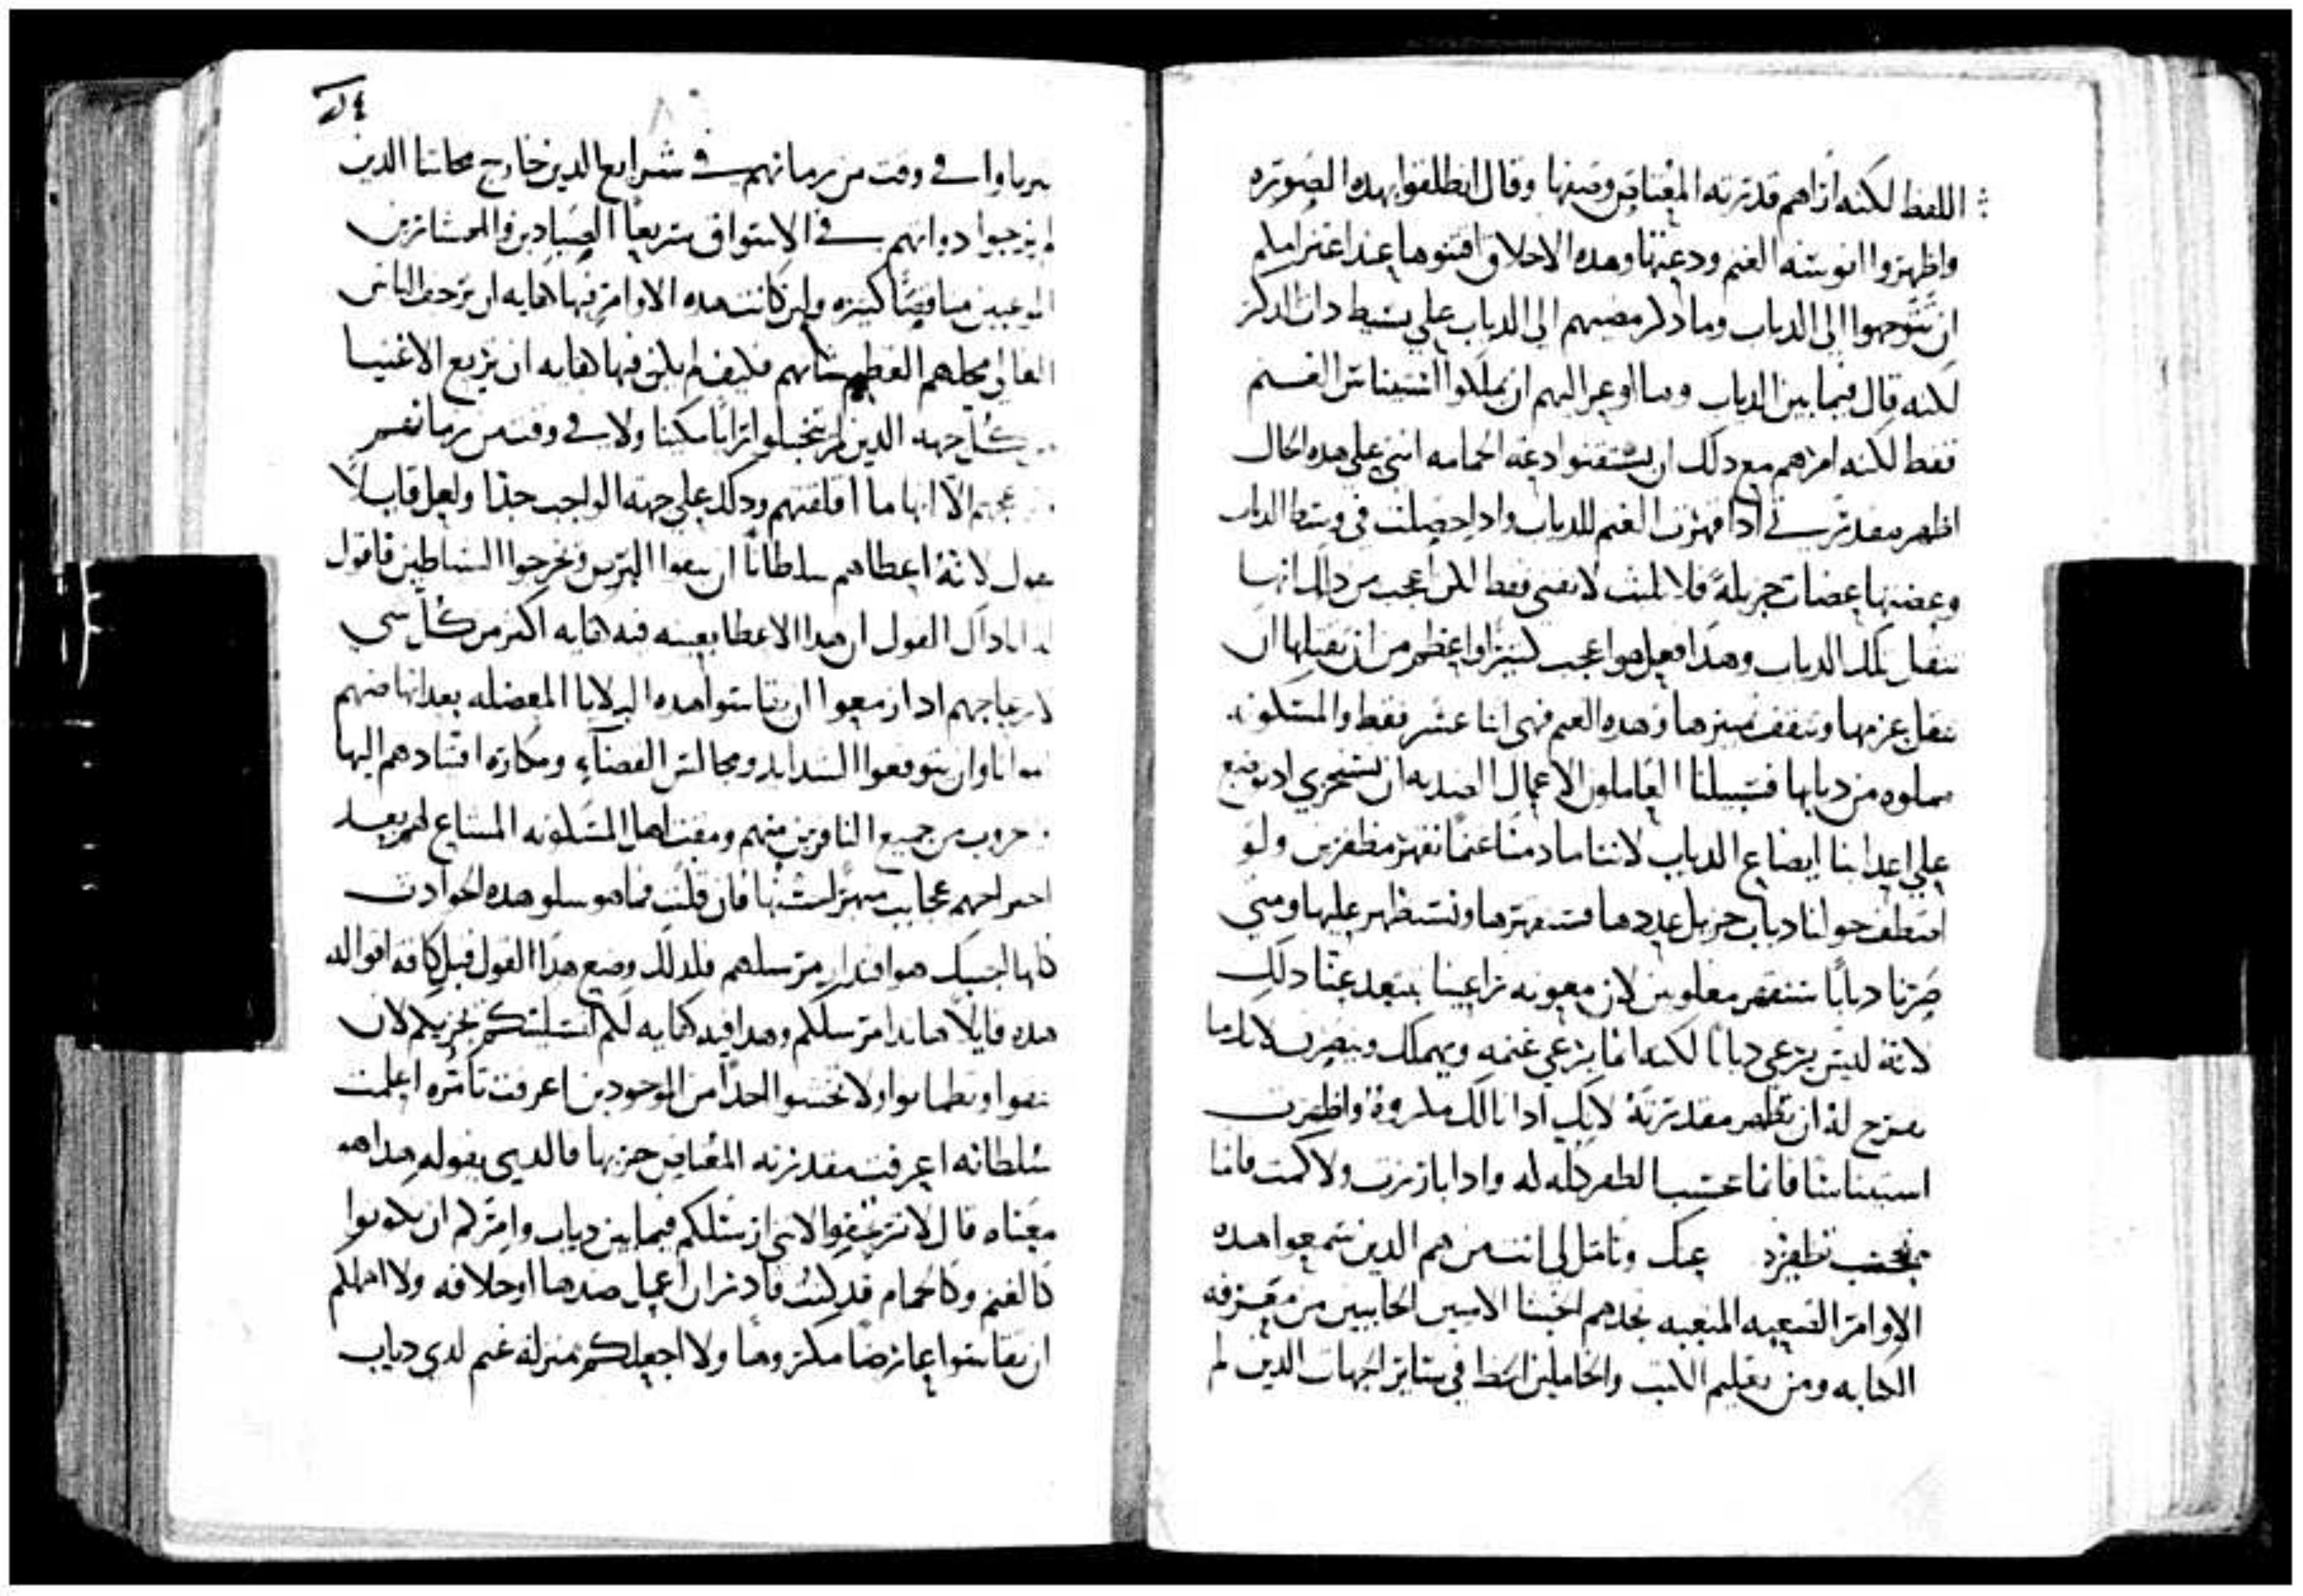 اللفظ لكنه اراهم قدرته المعتاص وصفها وقال انطلقوا بهده الصوره
واظهروا انوسه الغنم ودعتها وهده الاخلاق اقتنوها عند اعتزامكم
ان تتوجهوا الى الدياب وما دكر مضيهم الى الدياب على بسيط دات الدكر
لكنه قال فيما بين الدياب وما اوعز اليهم ان يملكوا استيناس الغنم
فقط لكنه امرهم مع دلك ان يقتنوا دعه الحمامه انني على هده الحال
اظهر مقدرتي في ادا قهرت الغنم للدياب وادا حصلت في وسط الدياب
وعضتها عضات جزيله فلا لمث لا تفنى فقط لكن اعجب من دلك انها
تنقل تلك الدياب وهدا فعل هو اعجب كثيرا واعظم من ان تقبلها ان
تنقل عزمها وتثقف ضميرها وهده الغنم فهى اثنا عشر فقط والمسكونه
مملوه من ديابها فسبيلنا العاملون الاعمال الضديه ان نستخزي اد نوضع
على اعداينا ايضاع الدياب لاننا ما دمنا غنما نقهر مظفرين ولو
احتطف حوالنا دياب جزيل عددها فسنقهرها ونستظهر عليها ومتى
صرنا ديابا سنقهر مغلوبين لان معونه راعينا تبتعد عنا دلك
لانه ليس يرعى ديابا لكنه انما يرعى غنمه ويهملك وينصرف لانك ما
تفرح له ان تظهر مقدرته لانك ادا نالك مكروه واظهرت
استيناسا فانما تحتسب الظفر كله له وادا بارزت ولاكمت فانما
تحجب تظفره عنك وتامل لى انت من هم الدين سمعوا هده
الاوامر الصعبه المتعبه تجدهم الجبنا الاميين الخايبين من معرفه
الكتابه ومن تعليم الكتب والخاملين ايضا في ساير الجهات الدين لم
يربوا ولا في وقت من زمانهم في شرايع الدين خارج محلتنا الدين
لم يزجوا دواتهم في الاسواق سريعا الصيادين والعشارين
الموعبين مناقصا كثيره ولين كانت هده الاوامر فيها كفايه ان ترجف الناس
العالي محلهم العظيم شانهم فكيف لم يكن فيها كفايه ان تريع الاغنيا
من كل جهه الدين لم يتخيلوا رايا مكينا ولا في وقت من زمانهم
الا انها ما اقلقتهم ودلك على جهه الواجب جدا ولعل قايلا
يقول لانه اعطاهم سلطانا ان ينقوا البرص ويخرجوا الشياطين فاقول
له انا داك القول ان هدا الاعطا بعينه فيه كفايه اكثر من كل شي
لازعاجهم اد ازمعوا ان يقاسوا هده البلايا المعضله بعد انهاضهم
امواتا وان يتوقعوا الشدايد ومجالس القضاء ومكاره اقتادهم اليها
حروب من جميع النافرين منهم ومقت اهل المسكونه المشاع لهم بعد
فان قلت فما هو سلو هده الحوادث
كلها اجيبك هو اقتدار مرسلهم فلدلك وضع هدا القول قبل كافه اقواله
هده قايلا هاندا مرسلكم وهدا فيه كفايه لكم لتسليتكم تجزيكم لان
تثقوا وتطمانوا ولا تخشوا احدا من الموجودين اعرفت تامره اعلمت
سلطانه اعرفت مقدرته المعتاص حزبها فالدي يقوله هدا هو
معناه قال لا ترتجفوا لانني ارسلكم فيما بين دياب وامركم ان تكونوا
كالغنم وكالحمام قد كنت قادرا ان اعمل ضدها اوخلافه ولا اهملكم
ان تقاسوا عارضا مكروها ولا اجعلكم منزله غنم لدى دياب